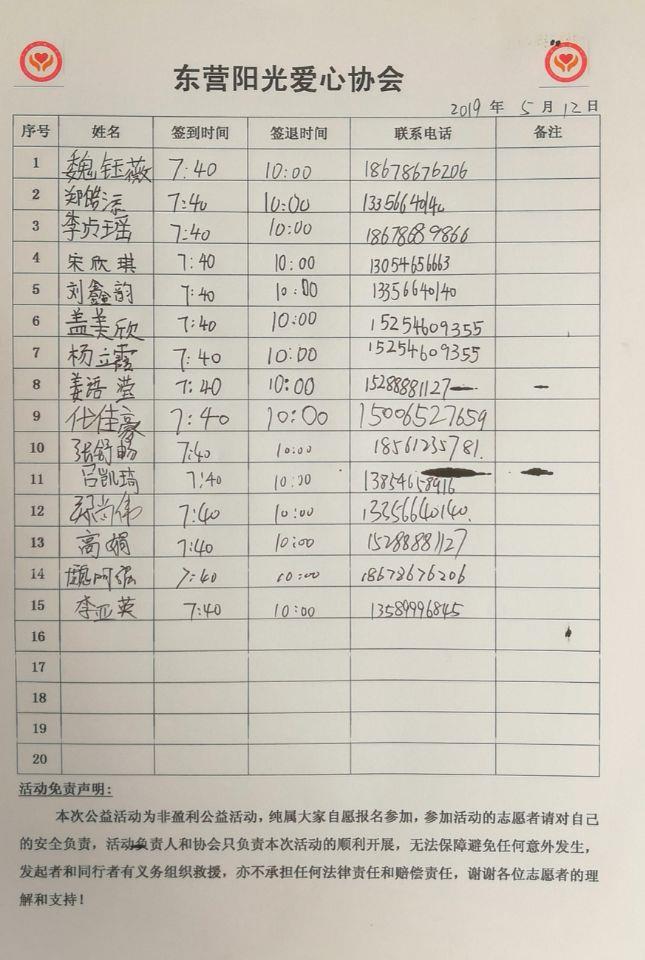 东营阳光爱心协会
2019 年 5 月 12 日
序号 姓名 签到时间 签退时间 联系电话 备注
1 魏钰薇 7:40 10:00 18678676206
2 7:40 10:00 13356640140
3 李贞瑶 7:40 10:00 18678689866
4 宋欣琪 7:40 10:00 13054656663
5 刘鑫韵 7:40 10:00 13356640140
6 盖美欣 7:40 10:00 15254609355
7 杨立霞 7:40 10:00 15254609355
8 姜语莹 7:40 10:00 15288881127
9 代佳豪 7:40 10:00 15006527659
10 张舒畅 7:40 10:00 18561235781.
11 吕凯琦 7:40 10:00 13854658916
12 7:40 10:00 13356640140.
13 高娟 7:40 10:00 15288881127
14 7:40 10:00 18678676206
15 李亚英 7:40 10:00 13589996845
16
17
18
19
20
活动免责声明：
本次公益活动为非盈利公益活动，纯属大家自愿报名参加，参加活动的志愿者请对自己
的安全负责，活动负责人和协会只负责本次活动的顺利开展，无法保障避免任何意外发生，
发起者和同行者有义务组织救援，亦不承担任何法律责任和赔偿责任，谢谢各位志愿者的理
解和支持！